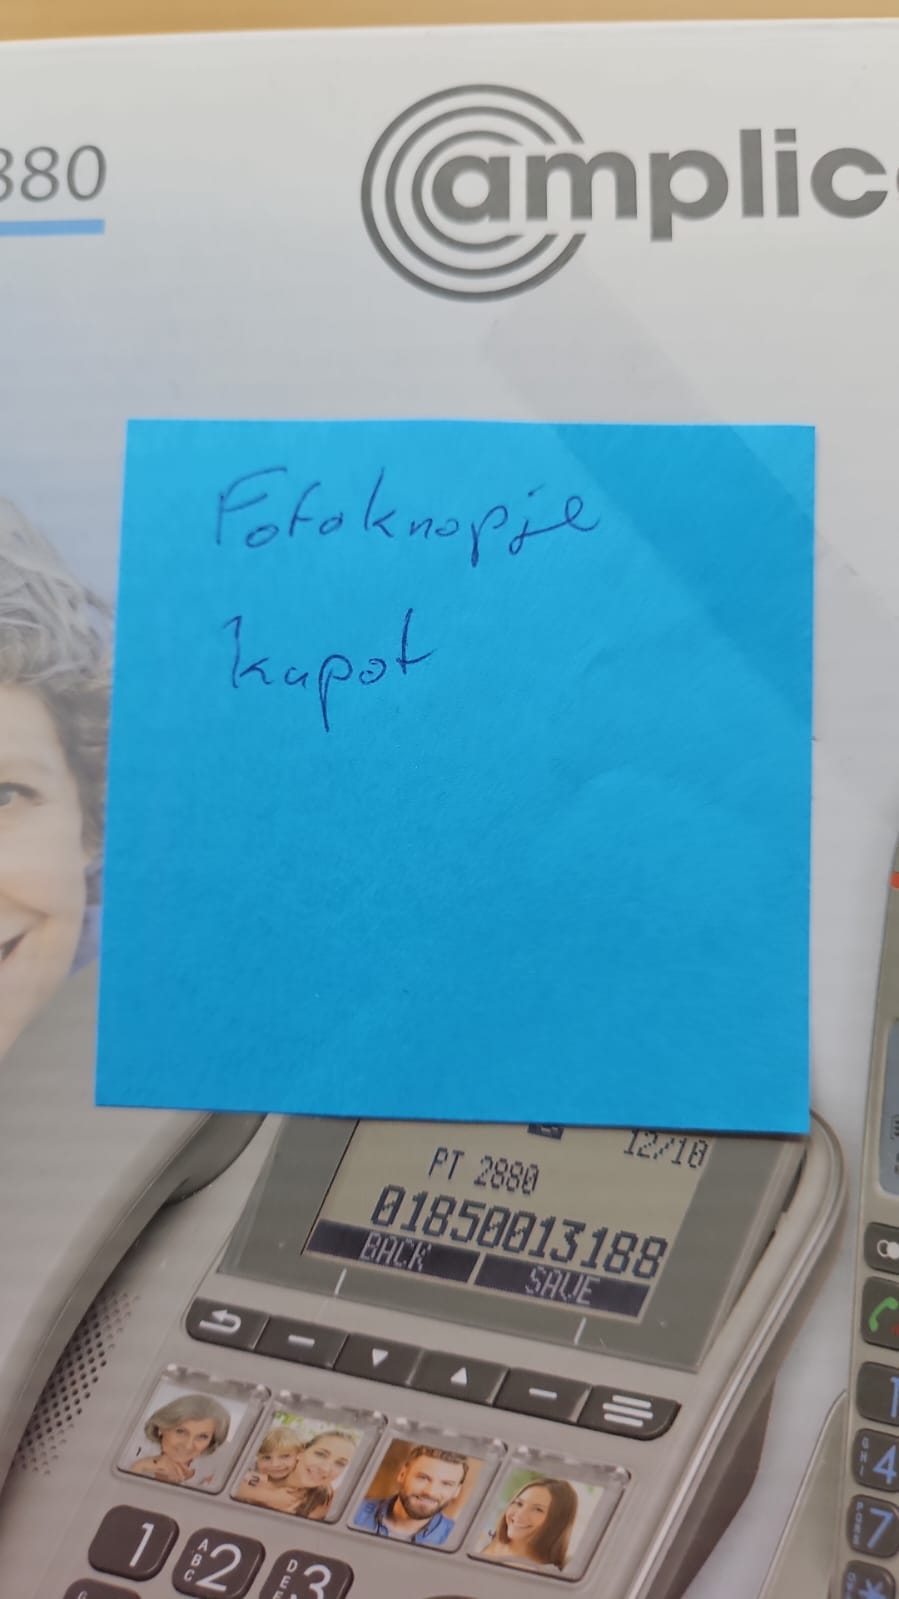 880
amplico
Fotoknopje
kapot
12/10
PT 2880
01850013188
BACK
SAVE
1
2
3
4
1
ABC 2
DEF 3
1
GHI 4
PQRS 7
*